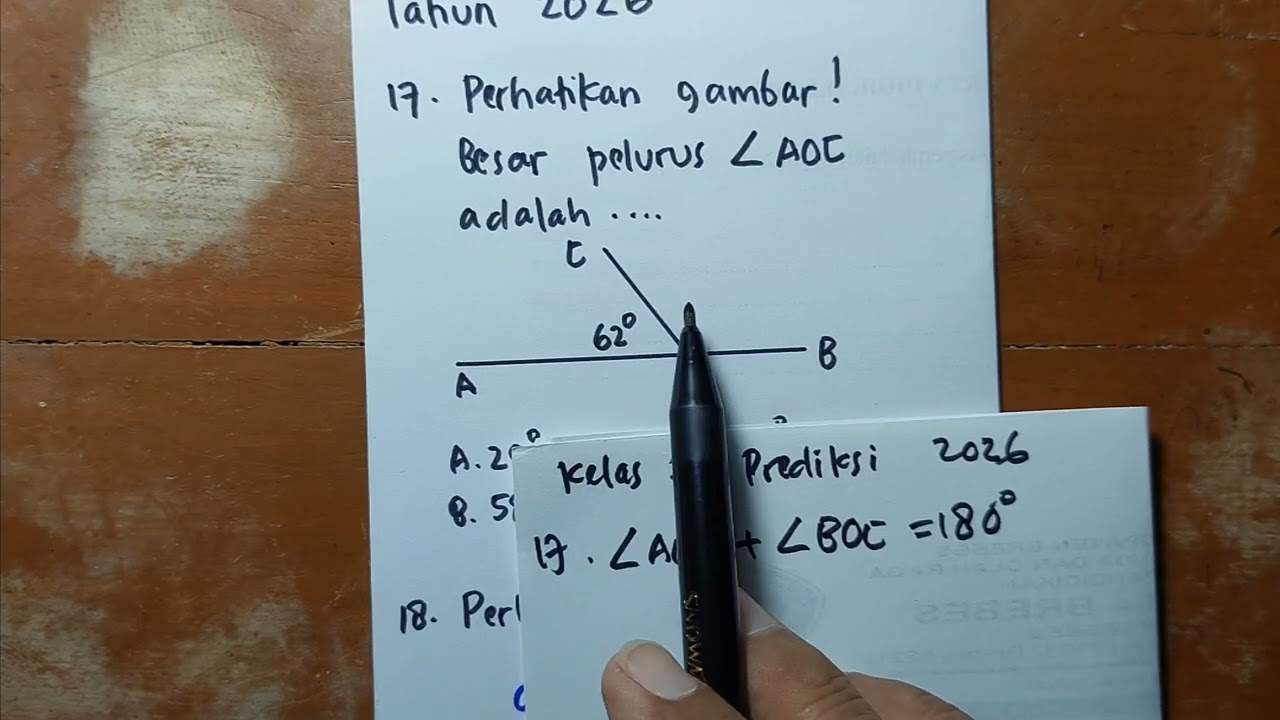 Tahun 2026
17. Perhatikan gambar!
Besar pelurus ∠AOC
adalah ....
C
62°
A
B
A. 2
B. 5
Kelas Prediksi 2026
17. ∠A + ∠BOC = 180°
18. Per
SNOWMA
BREBES